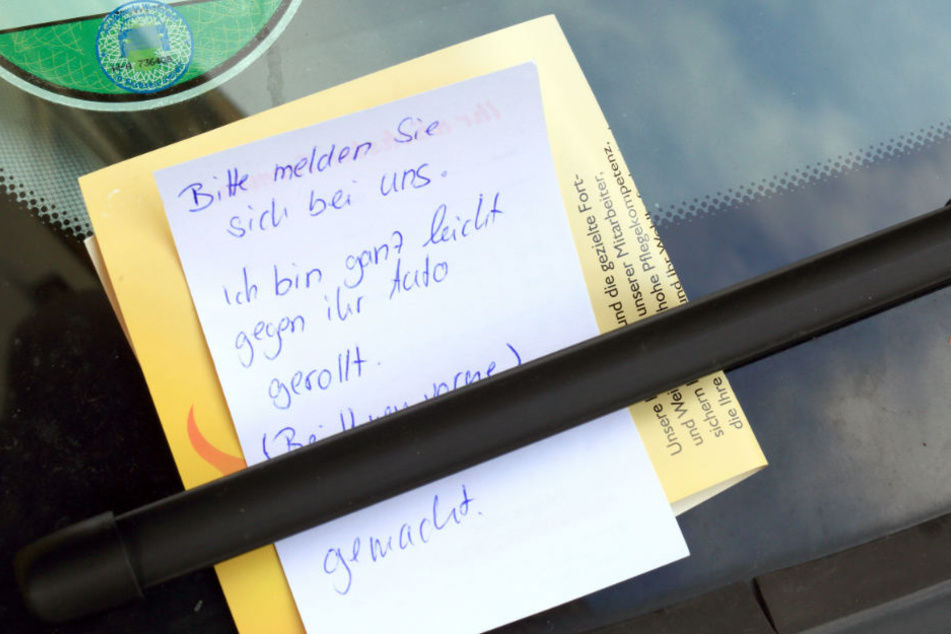 Bitte melden Sie
sich bei uns.
ich bin ganz leicht
gegen ihr Auto
gerollt.
(Bei Ihnen vorne)
gemacht.
und die gezielte Fort-
unserer Mitarbeiter,
hohe Pflegekompetenz,
und Ihr
Unsere
und Wei
sichern
die Ihre